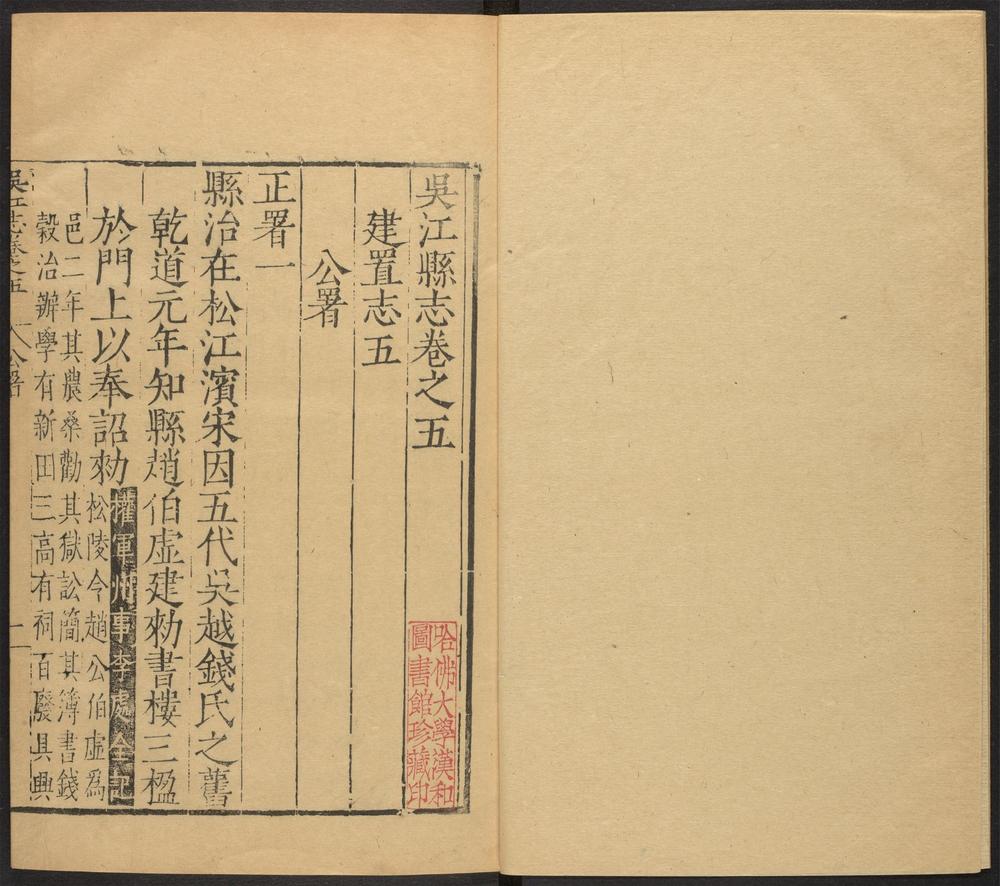 吳江縣志卷之五
建置志五
公署
正署一
縣治在松江濱宋因五代吳越錢氏之舊
乾道元年知縣趙伯虛建勑書樓三楹
於門上以奉詔勑權軍州事李處全記松陵令趙公伯虛爲
邑二年其農桑勸其獄訟簡其簿書錢
穀治辦學有新田三高有祠百廢具興
吳江志卷之五 公署 一
哈佛大學漢和
圖書館珍藏印